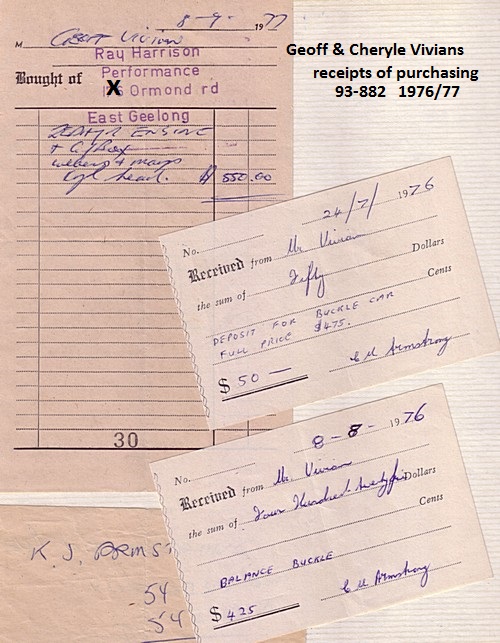 8-9- 1977
M Geoff Vivian
Ray Harrison
Bought of Performance
X Ormond rd
East Geelong
ZEPHYR ENGINE
+ G/Box
webers + mags
Cyl head. $ 550.00
30
Geoff & Cheryle Vivians
receipts of purchasing
93-882 1976/77
24/7/ 1976
No.
Received from Mr Vivian
the sum of Fifty Dollars
Cents
DEPOSIT FOR BUCKLE CAR
FULL PRICE $475.
$ 50 —
Armstrong
8-8- 1976
No.
Received from Mr. Vivian
the sum of Four Hundred twenty five Dollars
Cents
BALANCE BUCKLE
Armstrong
$ 425
K. J. ARMST
54
54